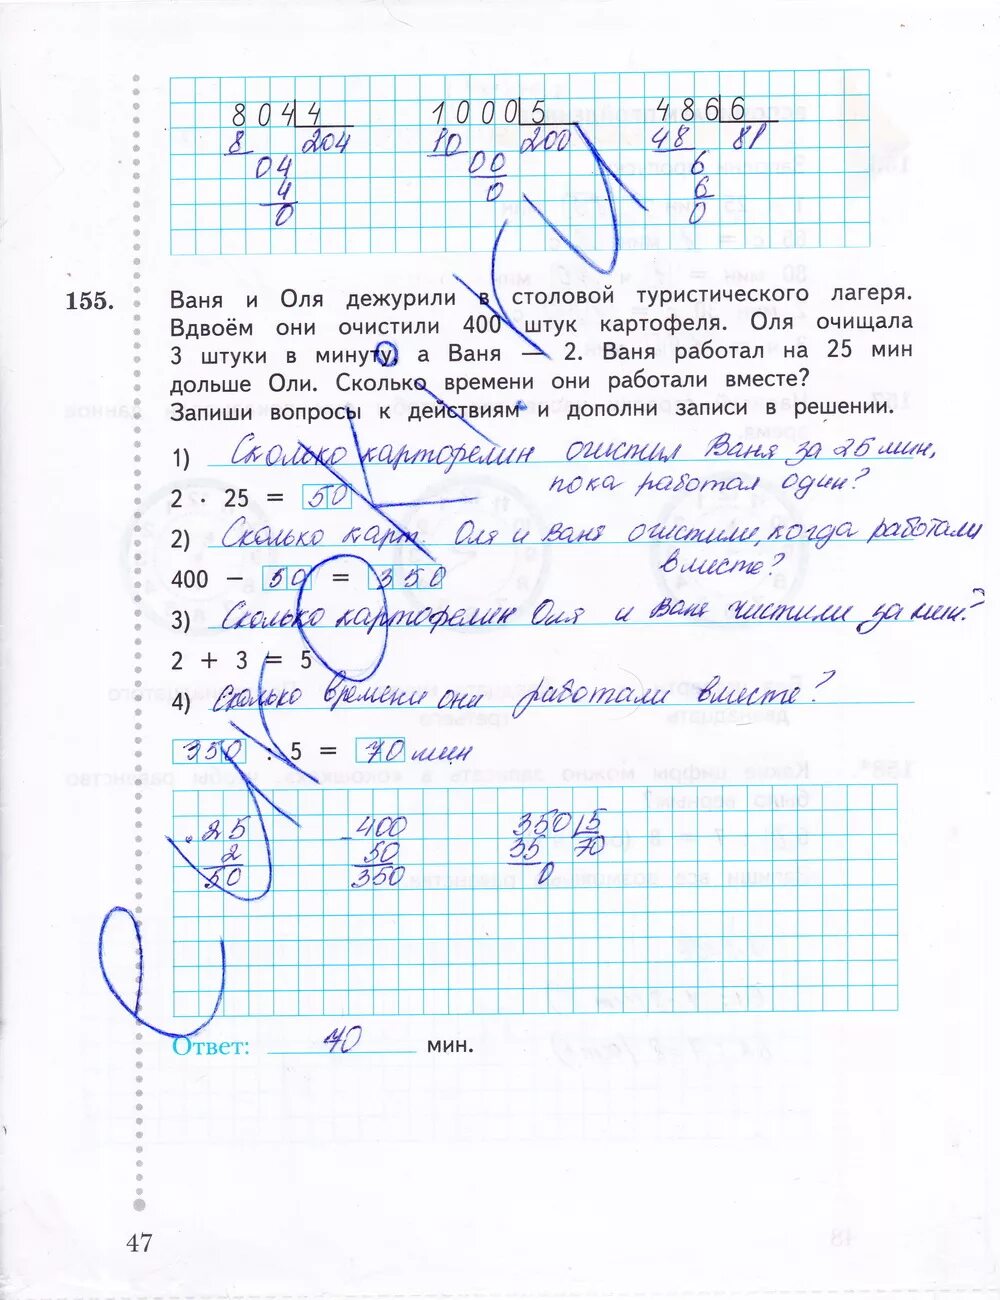 804 4
8 204
04
4
0
1000 5
10 200
00
0
486 6
48 81
6
6
0
155. Ваня и Оля дежурили в столовой туристического лагеря.
Вдвоём они очистили 400 штук картофеля. Оля очищала
3 штуки в минуту, а Ваня — 2. Ваня работал на 25 мин
дольше Оли. Сколько времени они работали вместе?
Запиши вопросы к действиям и дополни записи в решении.
1) Сколько картофелин очистил Ваня за 25 мин,
пока работал один?
2 · 25 = 50
2) Сколько карт. Оля и Ваня очистили, когда работали
вместе?
400 − 50 = 350
3) Сколько картофелин Оля и Ваня чистили за мин?
2 + 3 = 5
4) Сколько времени они работали вместе?
350 : 5 = 70 мин
· 25
2
50
- 400
50
350
350 5
35 70
0
Ответ: 70 мин.
47